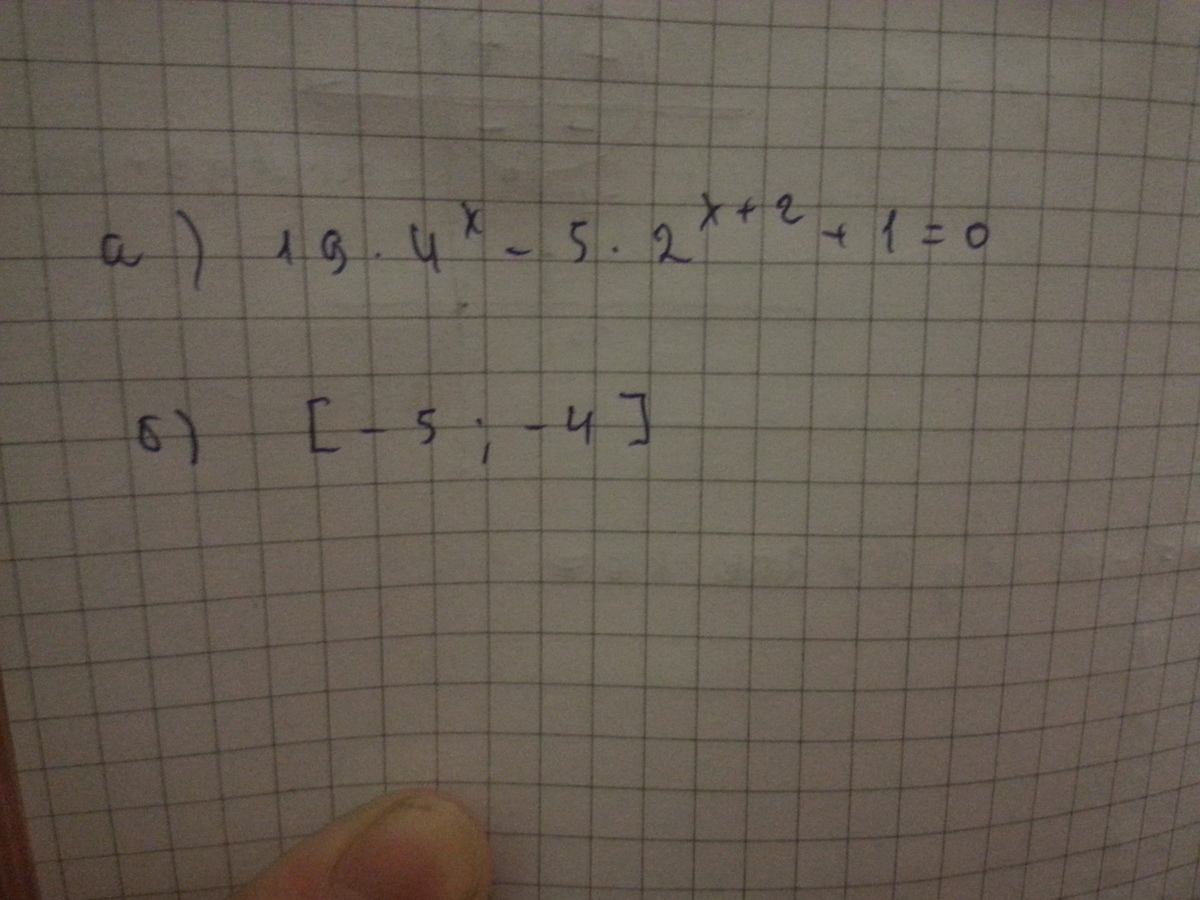 а) 19 · 4^x - 5 · 2^(x+2) + 1 = 0
б) [-5; -4]